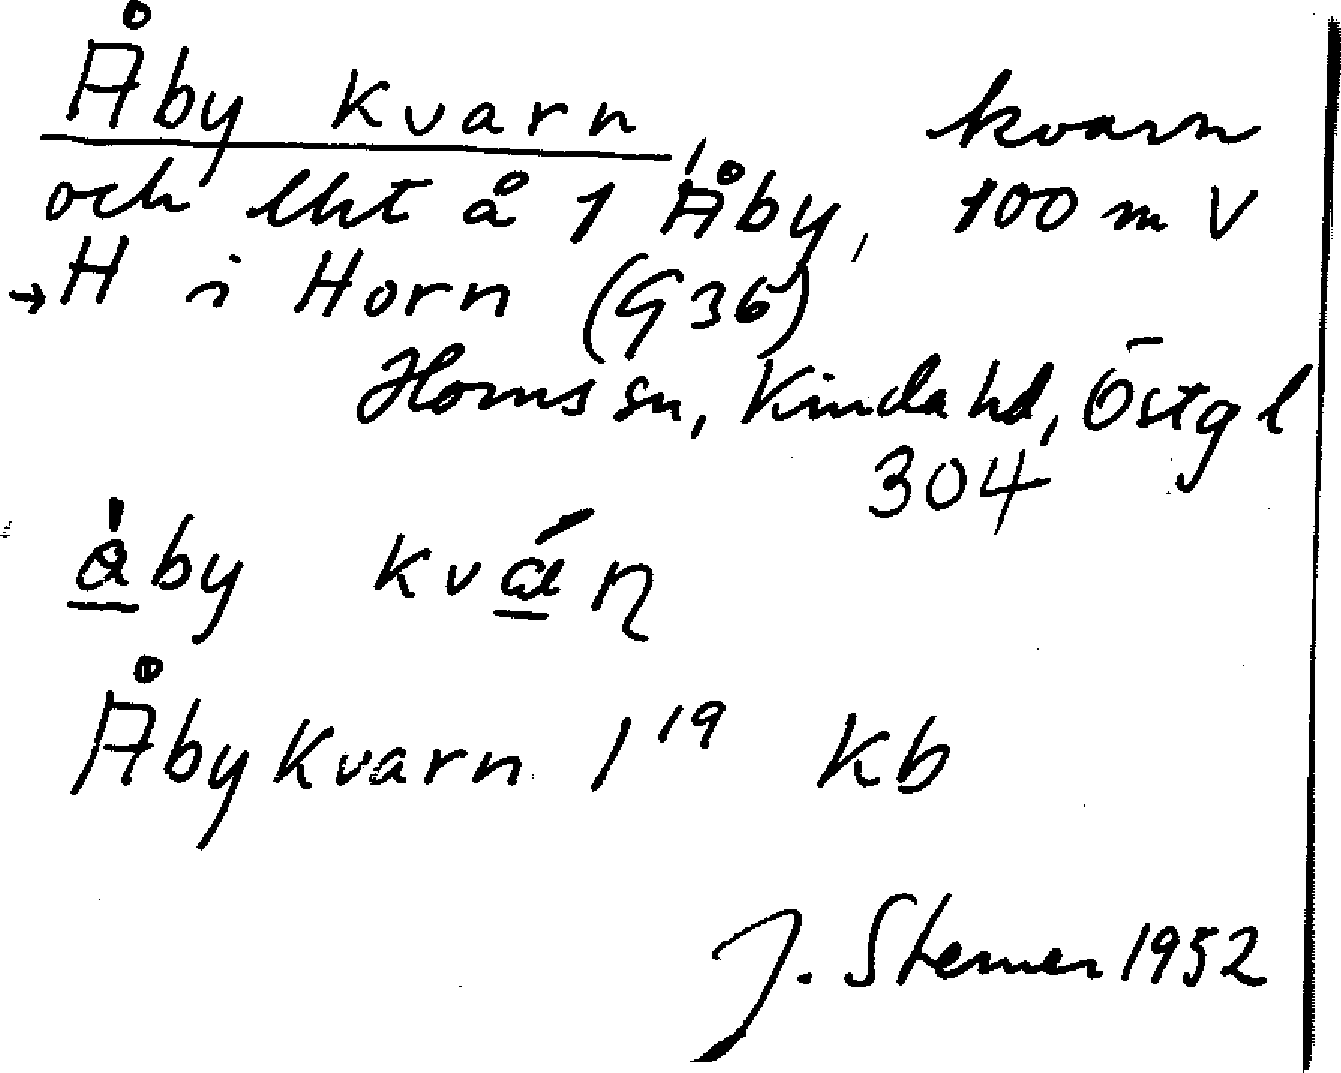 Åby kvarn, kvarn
och lht å 1 Åby, 100 m V
→H i Horn (G36)
Horns sn, Kinda hd, Östgl
304
åby kván
Åby Kvarn 1¹⁹ Kb
J. Sterner 1952